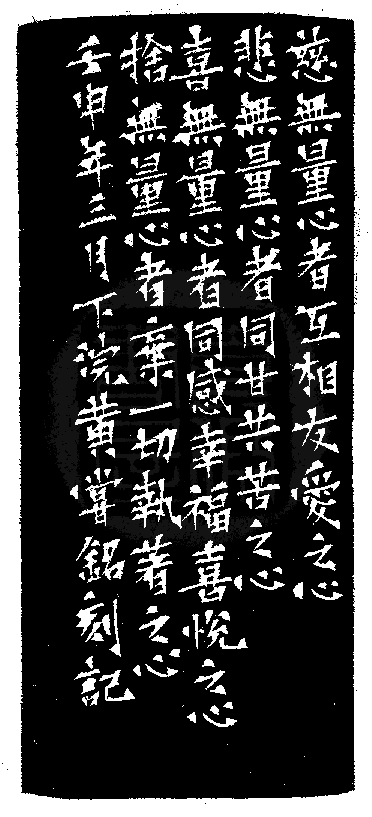 慈無量心者互相友愛之心
悲無量心者同甘共苦之心
喜無量心者同感幸福喜悅之心
捨無量心者棄一切執著之心
壬申年三月下浣黃嘗銘刻記